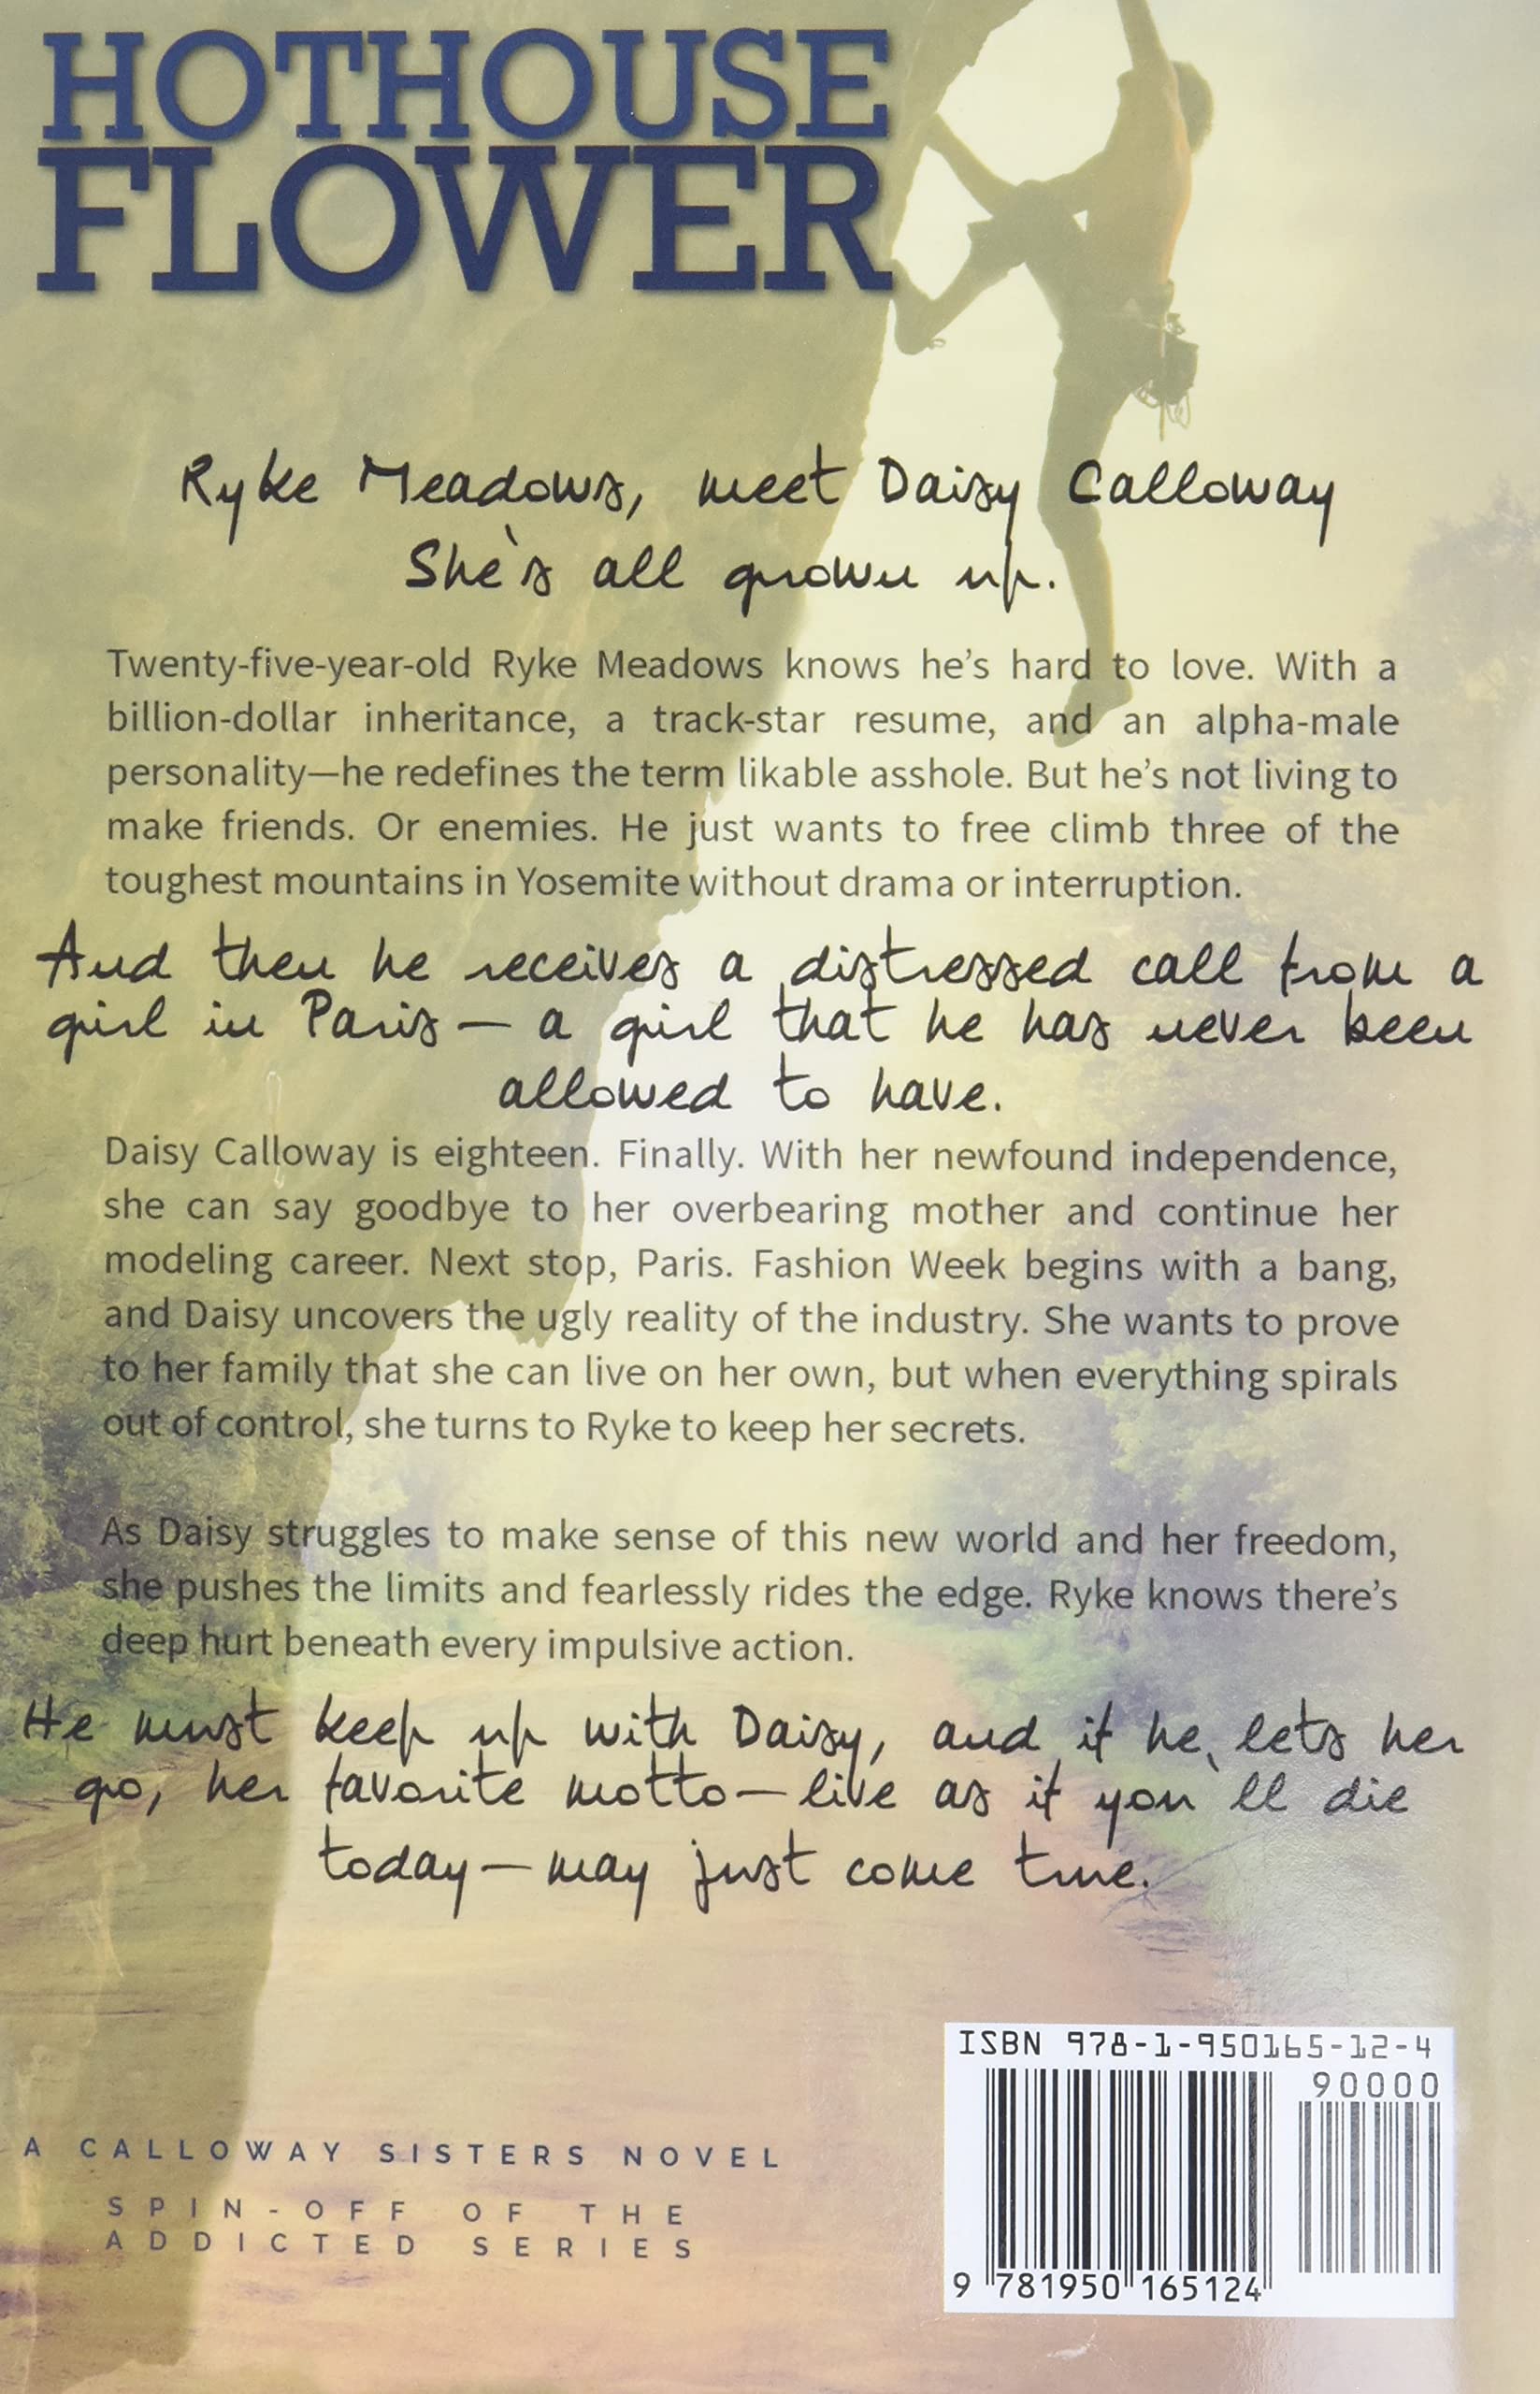 HOTHOUSE
FLOWER
Ryke Meadows, meet Daisy Calloway
She's all grown up.
Twenty-five-year-old Ryke Meadows knows he's hard to love. With a
billion-dollar inheritance, a track-star resume, and an alpha-male
personality—he redefines the term likable asshole. But he's not living to
make friends. Or enemies. He just wants to free climb three of the
toughest mountains in Yosemite without drama or interruption.
And then he receives a distressed call from a
girl in Paris—a girl that he has never been
allowed to have.
Daisy Calloway is eighteen. Finally. With her newfound independence,
she can say goodbye to her overbearing mother and continue her
modeling career. Next stop, Paris. Fashion Week begins with a bang,
and Daisy uncovers the ugly reality of the industry. She wants to prove
to her family that she can live on her own, but when everything spirals
out of control, she turns to Ryke to keep her secrets.
As Daisy struggles to make sense of this new world and her freedom,
she pushes the limits and fearlessly rides the edge. Ryke knows there's
deep hurt beneath every impulsive action.
He must keep up with Daisy, and if he lets her
go, her favorite motto—live as if you'll die
today—may just come true.
ISBN 978-1-950165-12-4
90000
9 781950 165124
A CALLOWAY SISTERS NOVEL
SPIN-OFF OF THE
ADDICTED SERIES